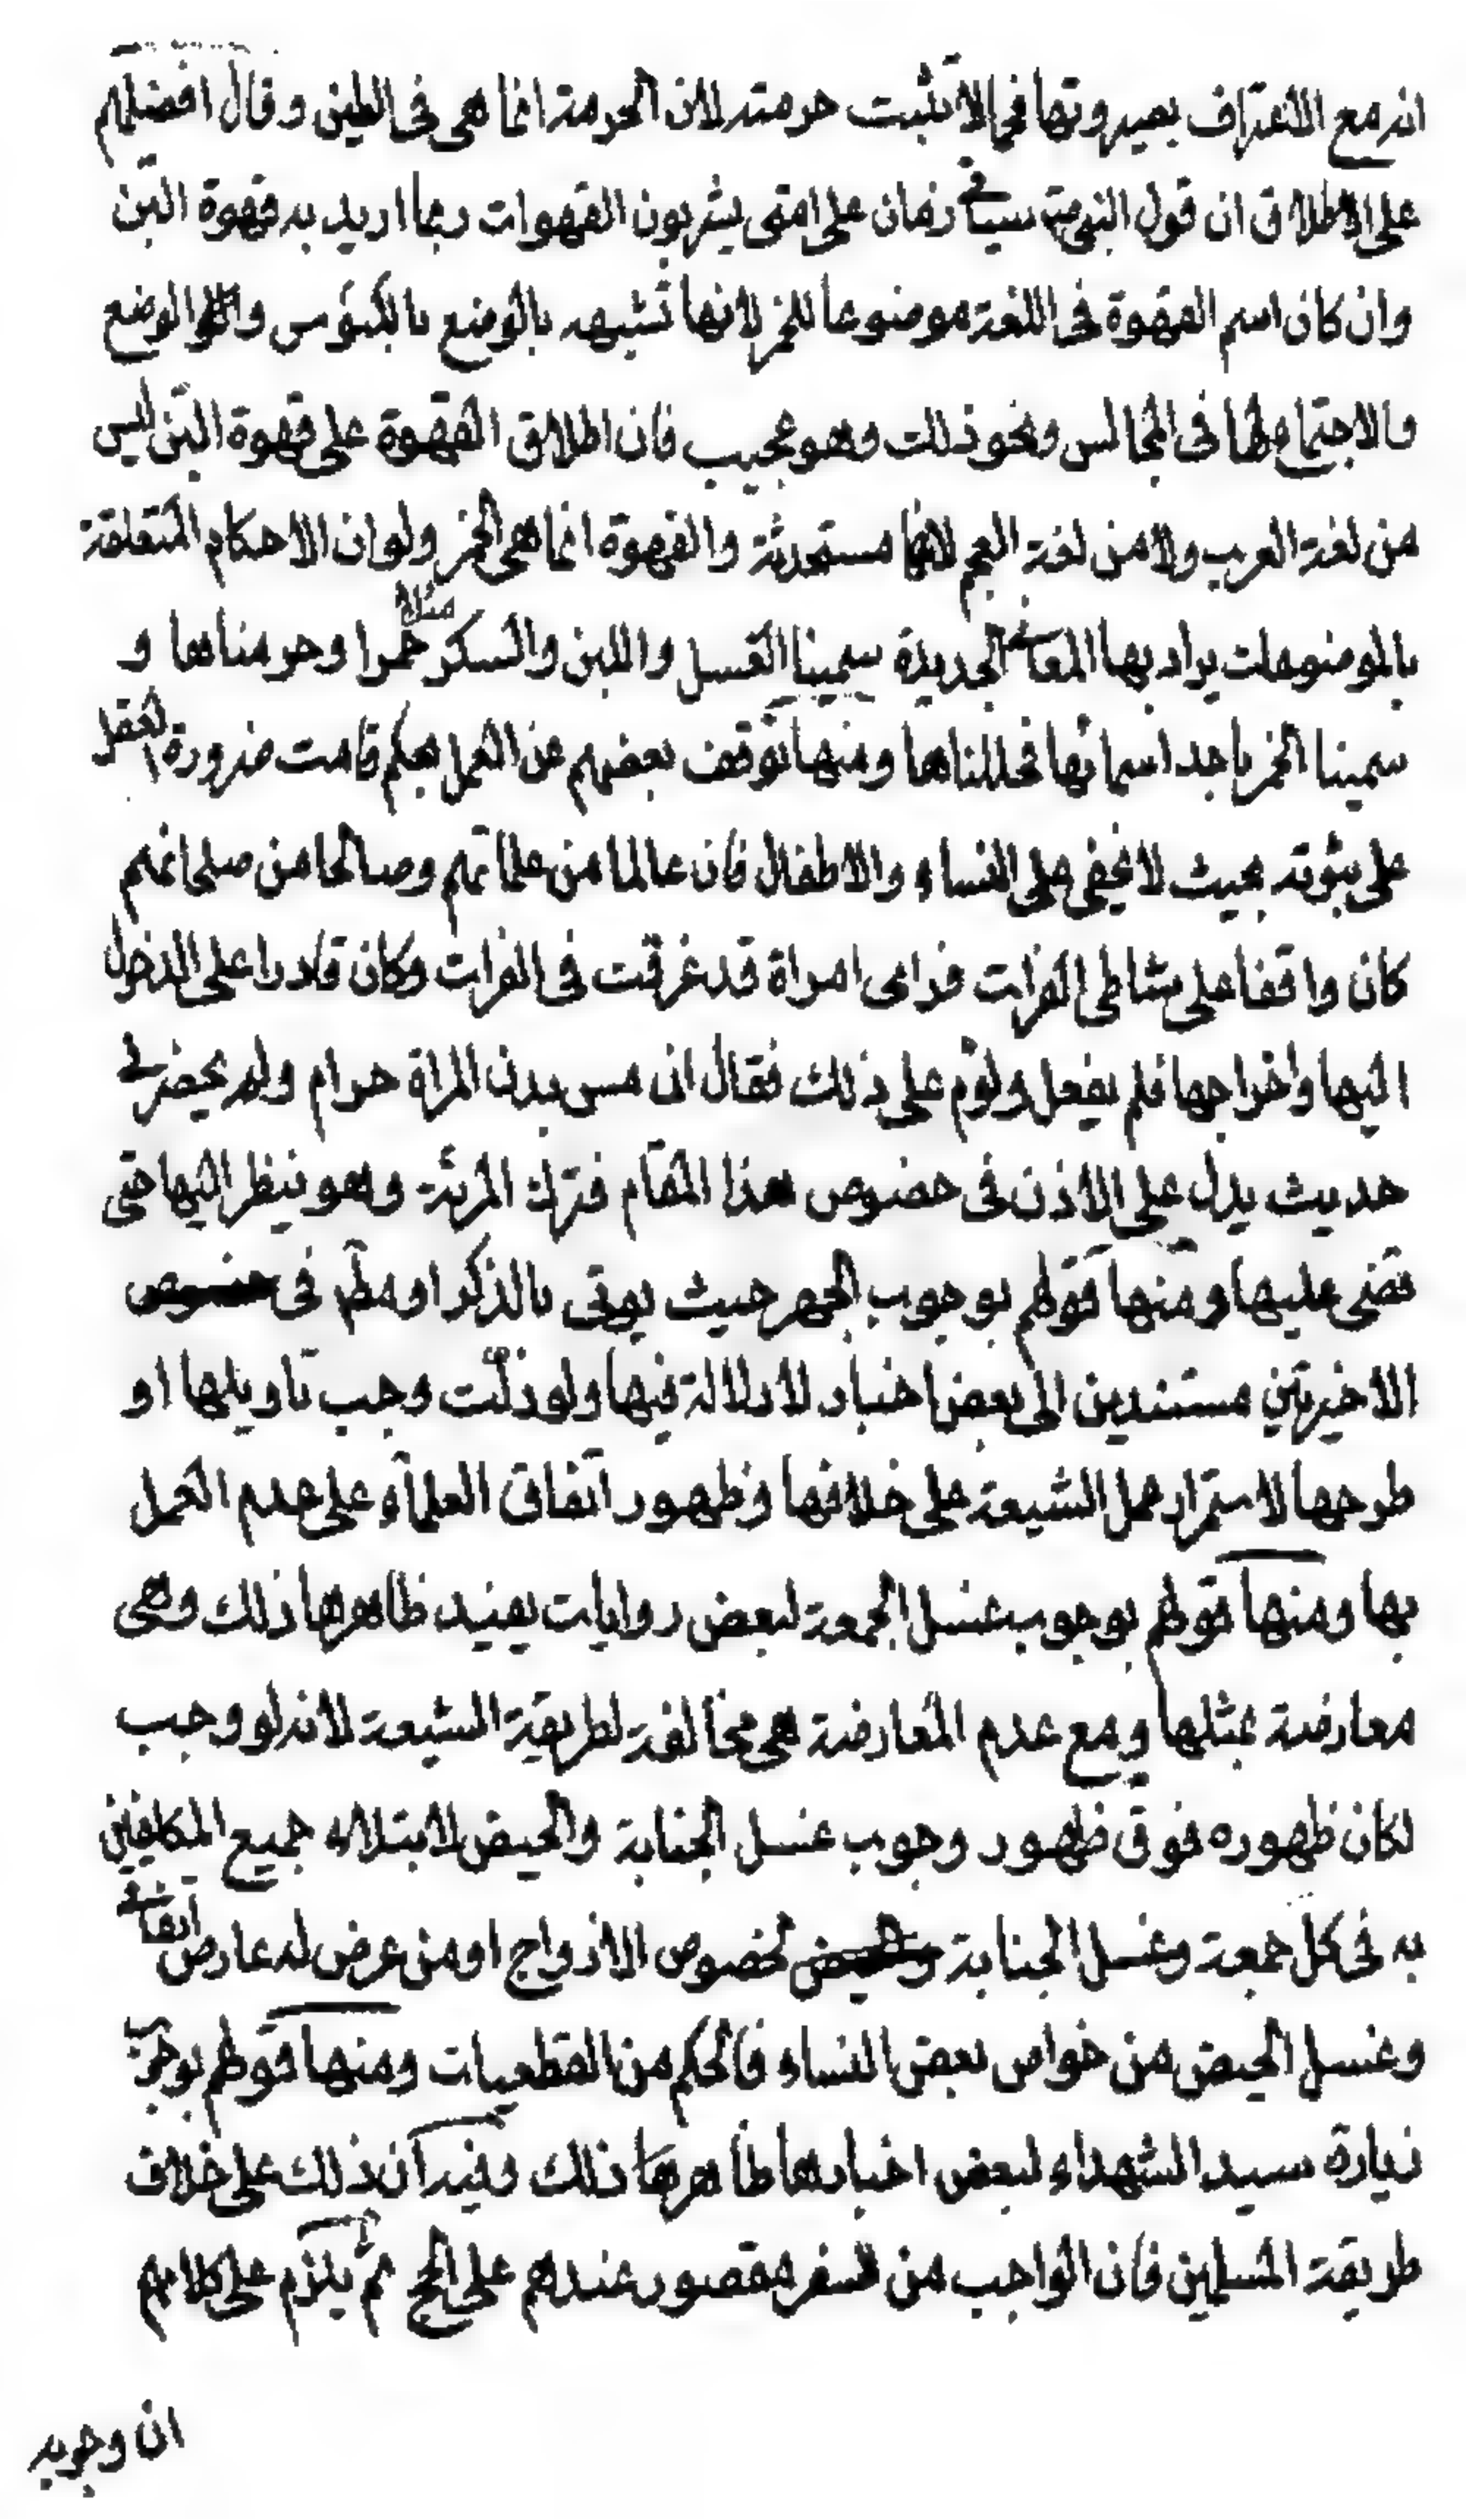 انه مع الاعتراف بصيروتها فحما لا تثبت حرمته لان الحرمة انما هى فى الطين وقال افضلهم
على الاطلاق ان قول النبى ص سياتى زمان على امتى يشربون القهوات ربما اريد به قهوة البن
وان كان اسم القهوة فى اللغة موضوعا للخمر لانها تشبهه بالوضع بالكئوس والوضع
والاجتماع لها فى المجالس ونحو ذلك وهو عجيب فان اطلاق القهوة على قهوة البن ليس
من لغة العرب ولا من لغة العجم لانها مستحدثة والقهوة انما هى الخمر ولو ان الاحكام المتعلقة
بالموضوعات يراد بها المعانى الجديدة سمينا العسل واللبن والسكر مثلا خمرا وحرمناها و
سمينا الخمر باحد اسمائها فحللناها ومنها توقف بعضهم عن العمل بحكم قامت ضرورة العقل
على ثبوته بحيث لا يخفى على النساء والاطفال فان عالما من علمائهم وصالحا من صلحائهم
كان واقفا على شاطى الفرات فراى امراة قد غرقت فى الفرات وكان قادرا على الدخول
اليها واخراجها فلم يفعل ولوم على ذلك فقال ان مس بدن المراة حرام ولم يحضرنى
حديث يدل على الاذن فى خصوص هذا المقام فترك المرئة وهو ينظر اليها حتى
قضى عليها ومنها قولهم بوجوب الجهر حيث يوتى بالذكر او مطم فى خصوص
الاخيرتين مستندين الى بعض اخبار لا دلالة فيها ولو دلت وجب تاويلها او
طرحها لاستمرار عمل الشيعة على خلافها وظهور اتفاق العلماء على عدم العمل
بها ومنها قولهم بوجوب غسل الجمعة لبعض روايات يفيد ظاهرها ذلك وهى
معارضة بمثلها ومع عدم المعارضة هى مخالفة لطريقة الشيعة لانه لو وجب
لكان ظهوره فوق ظهور وجوب غسل الجنابة والحيض لابتلاء جميع المكلفين
به فى كل جمعة وغسل الجنابة لخصوص الازواج او من عرض له عارض اتفاقى
وغسل الحيض من خواص بعض النساء فالحكم من القطعيات ومنها قولهم بوجوب
زيارة سيد الشهداء لبعض اخبار ظاهرها ذلك وفيه ان ذلك على خلاف
طريقة المسلمين فان الواجب من السفر مقصور عندهم على الحج ثم يلزم على كلامهم
ان وجوبه